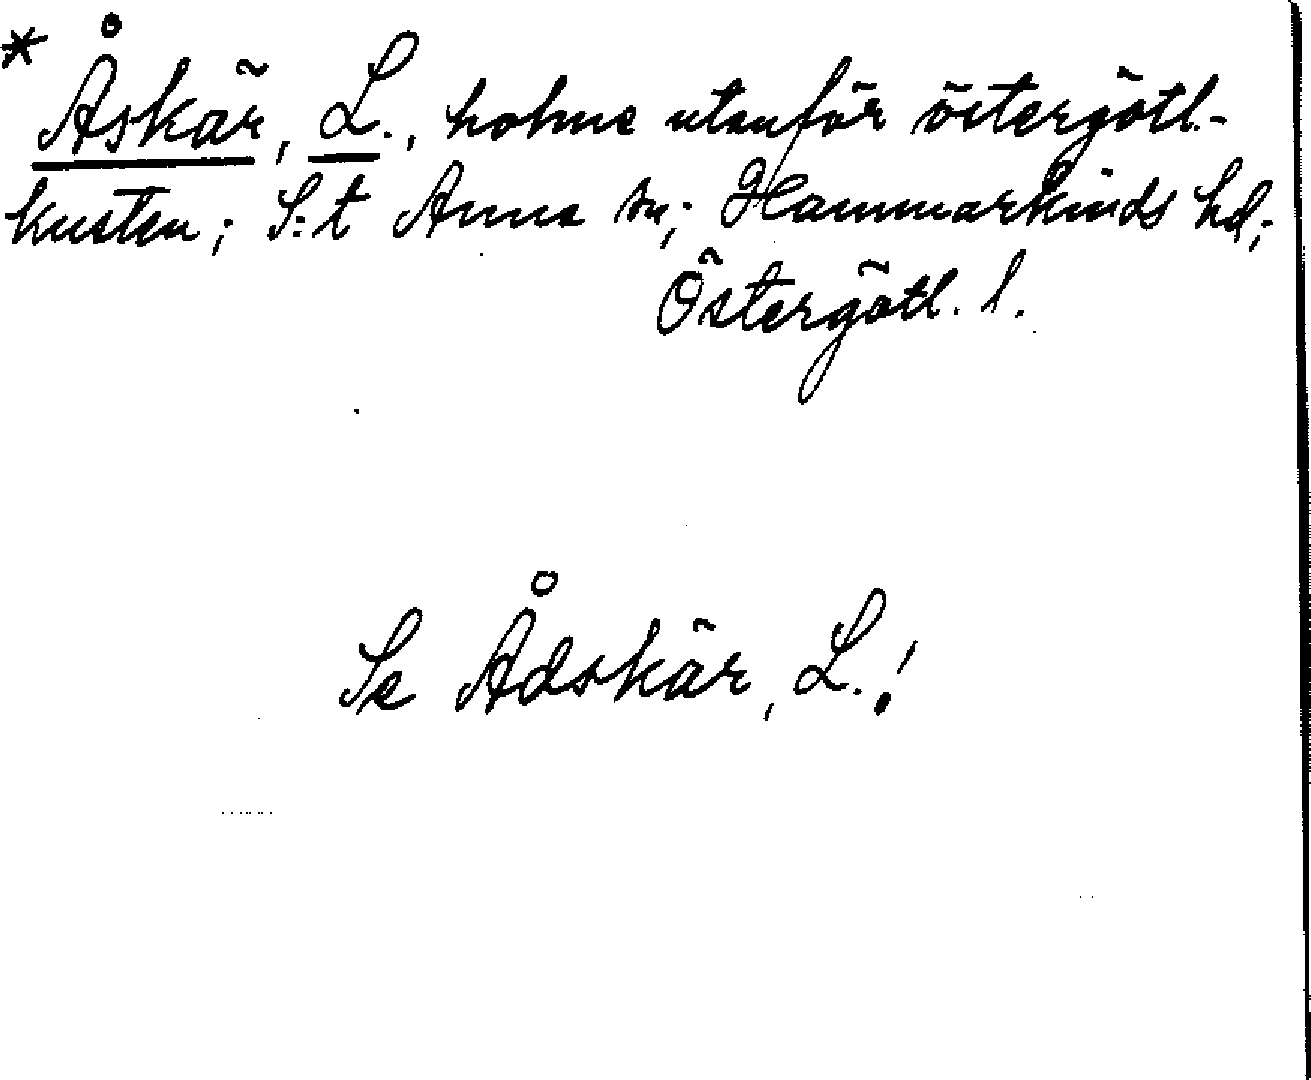 * Åskär, L., holme utanför östergötl.-
kusten; S:t Anna sn; Hammarkinds hd;
Östergötl. l.
Se Ådskär, L.!